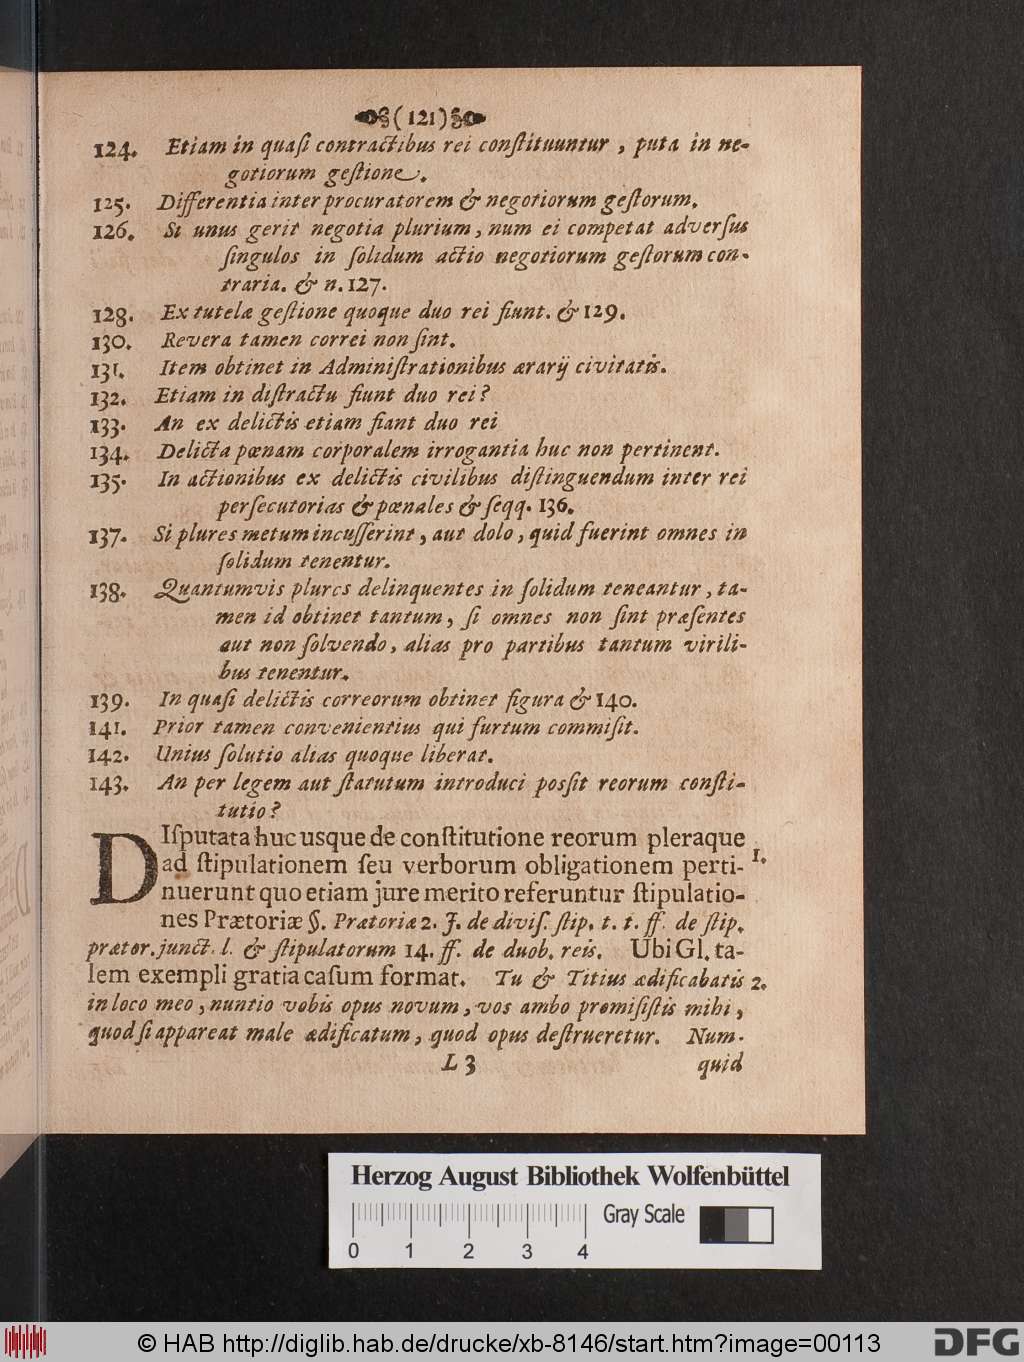 (121)
124. Etiam in quaſi contractibus rei conſtituuntur, puta in ne-
gotiorum geſtione.
125. Differentia inter procuratorem & negotiorum geſtorum.
126. Si unus gerit negotia plurium, num ei competat adverſus
ſingulos in ſolidum actio negotiorum geſtorum con-
traria. & n. 127.
128. Ex tutelæ geſtione quoque duo rei fiunt. & 129.
130. Revera tamen correi non ſint.
131. Item obtinet in Adminiſtrationibus ærarij civitatis.
132. Etiam in diſtractu fiunt duo rei?
133. An ex delictis etiam fiant duo rei
134. Delicta pœnam corporalem irrogantia huc non pertinent.
135. In actionibus ex delictis civilibus diſtinguendum inter rei
perſecutorias & pœnales & ſeqq. 136.
137. Si plures metum incuſſerint, aut dolo, quid fuerint omnes in
ſolidum tenentur.
138. Quantumvis plures delinquentes in ſolidum teneantur, ta-
men id obtinet tantum, ſi omnes non ſint præſentes
aut non ſolvendo, alias pro partibus tantum virili-
bus tenentur.
139. In quaſi delictis correorum obtinet figura & 140.
141. Prior tamen convenientius qui furtum commiſit.
142. Unius ſolutio alias quoque liberat.
143. An per legem aut ſtatutum introduci poſſit reorum conſti-
tutio?
DIſputata huc usque de conſtitutione reorum pleraque 1.
ad ſtipulationem ſeu verborum obligationem perti-
nuerunt quo etiam jure merito referuntur ſtipulatio-
nes Prætoriæ §. Prætoriæ 2. J. de diviſ. ſtip. t. t. ff. de ſtip.
prætor. junct. l. & ſtipulatorum 14. ff. de duob. reis. Ubi Gl. ta-
lem exempli gratia caſum format. Tu & Titius ædificabatis 2.
in loco meo, nuntio vobis opus novum, vos ambo promiſiſtis mihi,
quod ſi appareat male ædificatum, quod opus deſtrueretur. Num-
L 3 quid
Herzog August Bibliothek Wolfenbüttel
Gray Scale
0 1 2 3 4
© HAB http://diglib.hab.de/drucke/xb-8146/start.htm?image=00113
DFG